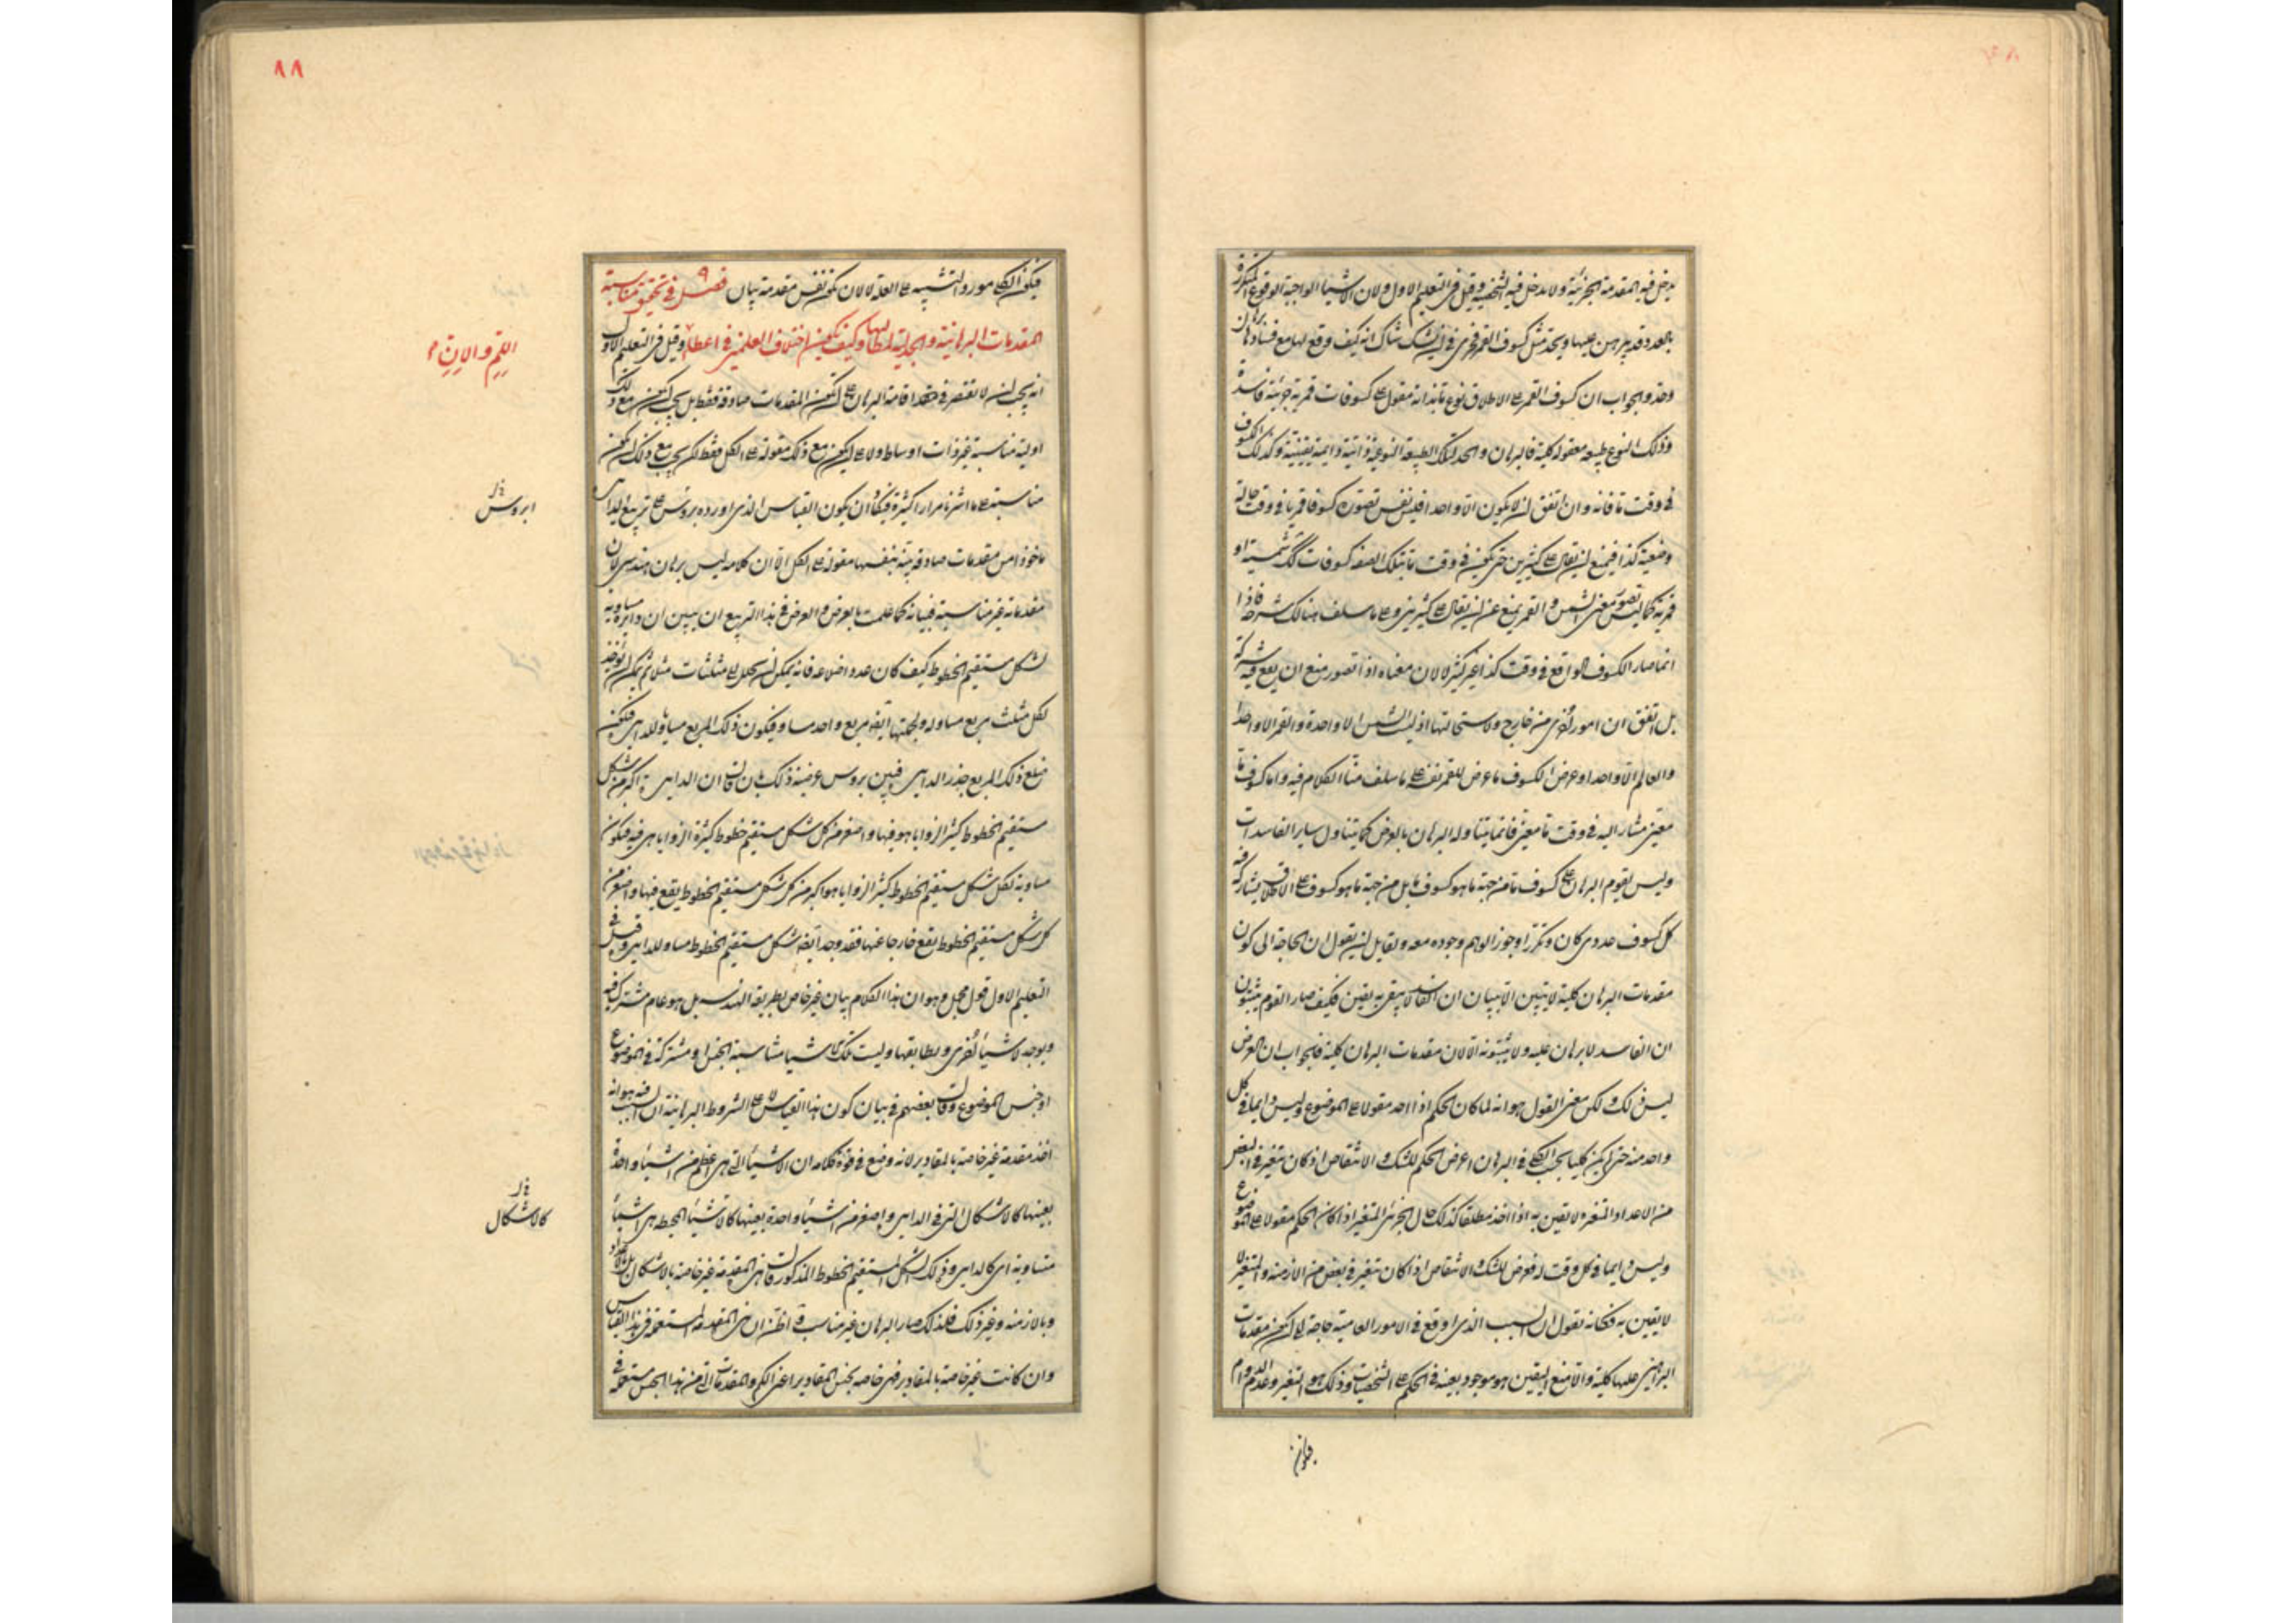 يدخل فيه المقدمة الجزئية ولا يدخل فيه الشخصية وقيل في التعليم الاول ولان الاشياء الواجبة الوقوع المتكررة
بالعدد قد يبرهن عليها ويحد مثل كسوف القمر فحري في ان يشك شاك انه كيف وقع لها مع فسادها برهان
وحد والجواب ان كسوف القمر على الاطلاق نوع ما بذاته مقول على كسوفات قمرية جزئية فاسدة
وذلك النوع طبيعة معقولة كلية فالبرهان والحد لتلك الطبيعة النوعية ذاتية دائمة يقينية وكذلك الكسوف
في وقت ما فانه وان اتفق ان لا يكون الا واحدا فليس نفس تصوره كسوفا قمريا في وقت حاله
وضعيته كذا فيمنع ان يقال على كثيرين حتى يكون في وقت ما بتلك الصفة كسوفات شمسية او
قمرية كما ليس تصور معنى الشمس والقمر يمنع عن ان يقال على كثيرين وعلى ما سلف هنالك شرحه فاذا
انما صار الكسوف الواقع في وقت كذا غير كثير لا لان معناه اذا تصور منع ان يقع فيه شركة
بل اتفق ان امور اخرى من خارج ولاستحالتها اذ ليست الشمس الا واحدة والقمر الا واحدا
والعالم الا واحدا وعرض الكسوف ما عرض للقمر نفسه على ما سلف منا الكلام فيه واما كسوف ما
معين مشار اليه في وقت ما معين فانما يتناوله البرهان بالعرض كما يتناول ساير الفاسدات
وليس يقوم البرهان على كسوف ما من جهة ما هو كسوف ما بل من جهة ما هو كسوف على الاطلاق يشاركه فيه
كل كسوف عددي كان وتكرر او جوز الوهم وجوده معه ولقايل ان يقول ان الحاجة الى كون
مقدمات البرهان كلية لا يتبين الا ببيان ان الفاسد لا يبقى به يقين فكيف صار القوم يثبتون
ان الفاسد لا برهان عليه ولا يثبتونه الا لان مقدمات البرهان كلية فالجواب ان الغرض
ليس ذلك ولكن معنى القول هو انه لما كان الحكم اذا اخذ مقولا على الموضوع وليس دايما في كل
واحد منه حتى يكون كليا بحسب الكلي في البرهان اعرض الحكم للشك والانتقاص اذ كان يتغير في البعض
من الاعداد والمتغيرة لا يقين به اذا اخذ مطلقا كذلك حال الجزئي المتغير اذا كان الحكم مقولا على الموضوع
وليس دايما في كل وقت له فعرض للشك والانتقاص اذا كان يتغير في بعض من الازمنة والمتغير لا
لا يقين به فكانه يقول ان السبب الذي اوقع في الامور العامية حاجة الى ان يكون مقدمات
البراهين عليها كلية والا منع اليقين هو موجود بعينه في الحكم على الشخصيات وذلك هو التغير وعدم الدوام
فيكون
٨٨
فيكون الكلام مورد التشبيه على العلة لا لان يكون نفس مقدمة بيان فصل ٩ في تحقيق مناسبة
المقدمات البرهانية والجدلية لمطالبها وكيف يكون اختلاف العلمين في اعطاء وقيل في التعليم الاول
اللم والان
انه يجب ان لا نقتصر في حد اقامة البرهان على ان يكون المقدمات صادقة فقط بل يجب ان يكون مع ذلك
اولية مناسبة غير ذات اوساط ولا على ان يكون مع ذلك مقولة على الكل فقط لكن يجب مع ذلك ان يكون
مناسبة على ما اشرنا مرارا كثيرة فيكاد ان يكون القياس الذي اورده بروسن على تربيع الدايرة
ابروس
ماخوذا من مقدمات صادقة بينة بنفسها مقولة على الكل الا ان كلامه ليس ببرهان هندسي لان
مقدماته غير مناسبة فبيانه كما علمت بالعرض والغرض في هذا التربيع ان يبين ان دايرة مساوية
لشكل مستقيم الخطوط كيف كان عدد اضلاعه فانه يمكن ان يحلل الى مثلثات مثلا ثم يمكن ان يوجد
لكل مثلث مربع مساو له ولجملتها ايضا مربع واحد مساو فيكون ذلك المربع مساويا للدايرة فيكون
ضلع ذلك المربع جذر الدايرة فبين بروسن غرضه ذلك بان قال ان الدايرة اكبر من كل شكل
مستقيم الخطوط كثير الزوايا هو فيها واصغر من كل شكل مستقيم خطوط كثيرة الزوايا هي فيه فيكون
مساوية لكل شكل مستقيم الخطوط كثير الزوايا هو اكبر من كل شكل مستقيم الخطوط يقع فيها واصغر من
كل شكل مستقيم الخطوط يقع خارجا عنها فقد وجد ايضا شكل مستقيم الخطوط مساو للدايرة وقيل في
التعليم الاول قول مجمل وهو ان هذا الكلام بيان غير خاص بطريقة الهندسة بل هو عام مشترك فيه
ويوجد لاشياء اخرى ويطابقها وليست تلك الاشياء مناسبة الجنس او مشتركة في الموضوع
او جنس الموضوع وقال بعضهم في بيان كون هذا القياس لا على الشروط البرهانية ان السبب فيه هو انه
اخذ مقدمة غير خاصة بالمقادير لانه وضع في قوة كلامه ان الاشياء التي هي اعظم من اشياء واحدة
بعينها كالاشكال التي في الدايرة واصغر من اشياء واحدة بعينها كالاشياء المحيطة هي اشياء
كالاشكال
متساوية اي كالدايرة وذلك الشكل المستقيم الخطوط المذكور قال هذه المقدمة غير خاصة بالاشكال بل بالاعداد
وبالازمنة وغير ذلك فلذلك صار البرهان غير مناسب واظن ان هذه المقدمة المستعملة في هذا القياس
وان كانت غير خاصة بالمقادير فهي خاصة بجنس المقادير اعني الكم والمقدمات التي من هذا الجنس مستعملة في